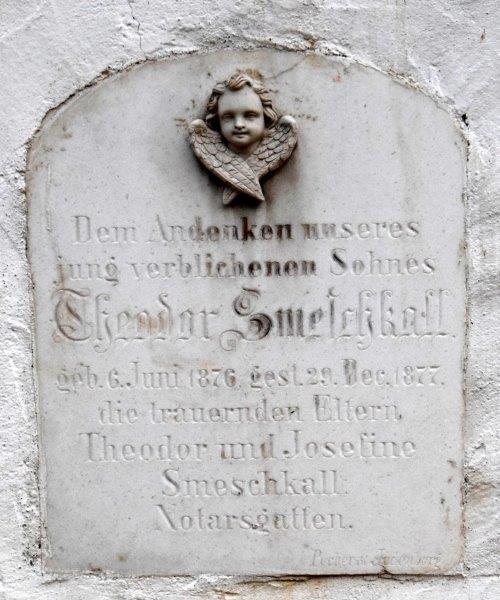 Dem Andenken unseres
jung verblichenen Sohnes
Theodor Smeschkall.
geb. 6. Juni 1876, gest. 29. Dec. 1877.
die trauernden Eltern,
Theodor und Josefine
Smeschkall.
Notarsgatten.